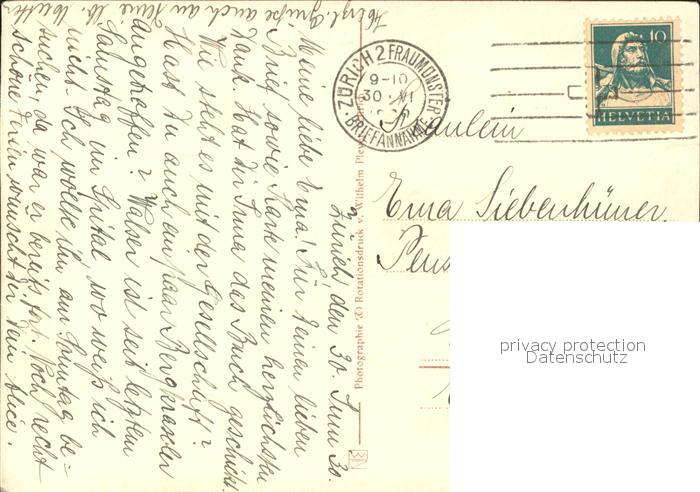 Herzl. Grüße auch an Deine lb. Mutter
Zürich, den 30. Juni 30.
Meine liebe Erna! Für Deinen lieben
Brief sowie Karte meinen herzlichsten
Dank. Hat dir Irma das Buch geschickt.
Wie steht es mit der Gesellschaft?
Hast du auch ein paar Bergkraxler
angetroffen? Walser ist seit letzten
Samstag im Spital, wo weiß ich
nicht. Ich wollte ihn am Sonntag be-
suchen, da war er bereits fort. Noch recht
schöne Ferien wünscht Dir Dein Alice.
Photographie & Rotationsdruck v. Wilhelm Pleyer
ZÜRICH 2 FRAUMÜNSTER
9-10
30. VI
BRIEFANNAHME
10
HELVETIA
Fräulein
Erna Siebenhüner
Pens
privacy protection
Datenschutz